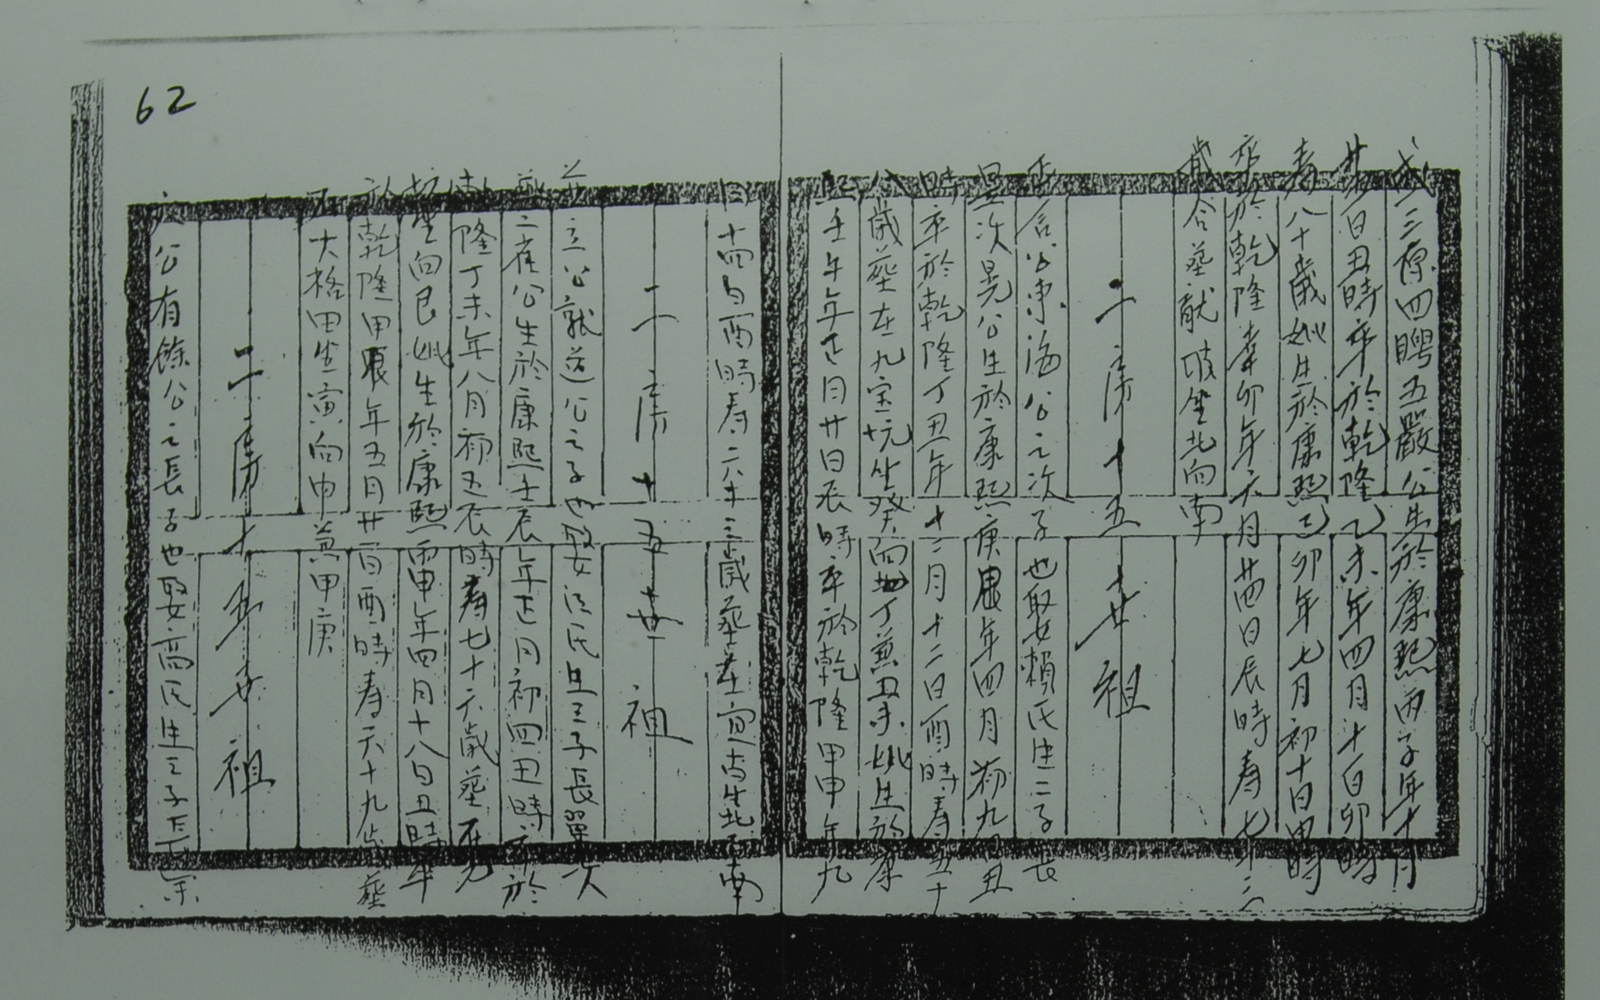 62
三原四聘五嚴公生於康熙丙子年十月
廿日丑時卒於乾隆乙未年四月十日卯時
壽八十歲妣生於康熙己卯年七月初十日申時
卒於乾隆辛卯年六月廿四日辰時壽七十三
歲合葬献坡坐北向南
二房十五世祖
公東海公之次子也娶賴氏生二子長
次晃公生於康熙庚年四月初九日丑
時卒於乾隆丁丑年十二月十二日酉時壽五十
八歲葬在九宝坑坐癸向丁兼丑未妣生於康
熙壬午年正月廿日辰時卒於乾隆甲申年九
月十四日酉時壽六十三歲葬在坐北向南
二房十五世祖
立公就送公之子也娶江氏生三子長翼次
三崔公生於康熙壬辰年正月初四丑時卒於
乾隆丁未年八月初五辰時壽七十六歲葬
坐向艮妣生於康熙丙申年四月十八日丑時卒
於乾隆甲辰年五月廿一日酉時壽六十九歲葬
大格田坐寅向申兼甲庚
二房十五世祖
公有餘公之長子也娶高氏生三子長